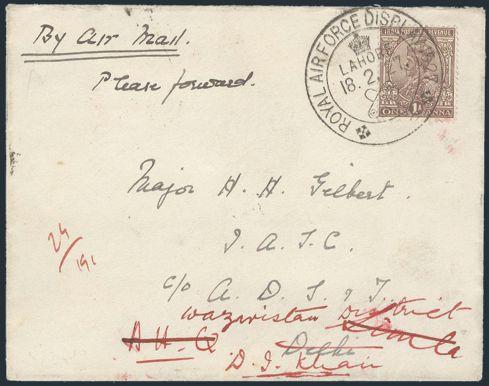 By Air Mail.
Please forward.
ROYAL AIR FORCE DISPLAY
LAHORE
18. 2.
INDIA POSTAGE & REVENUE
1A
ONE ANNA
Major H. H. Gilbert.
I. A. S. C.
c/o A. D. S & T.
Waziristan District
A H-Q Simla
Delhi
D. I. Khan
24/191